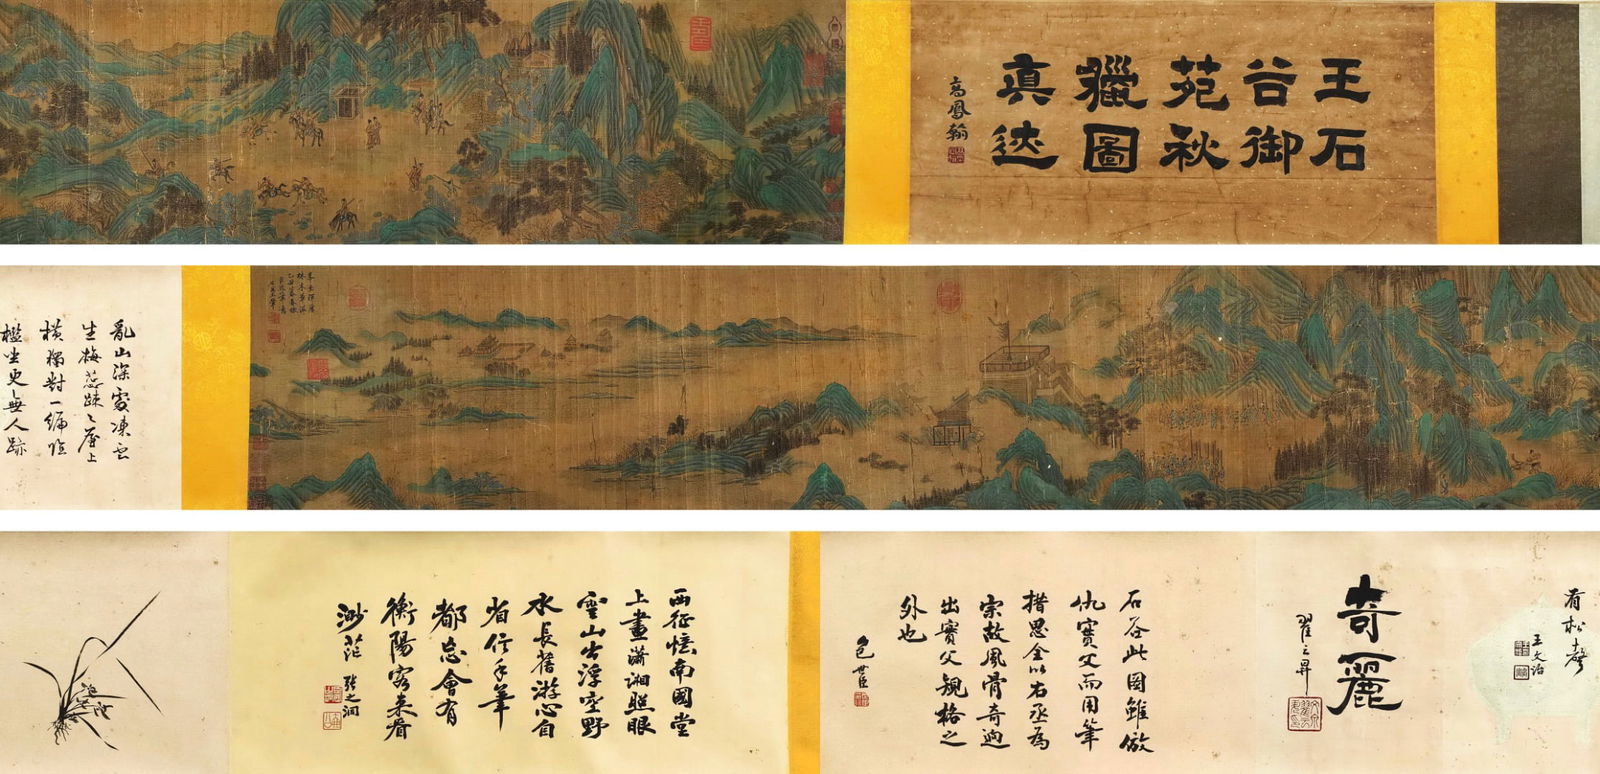 王石
谷御
苑秋
獵圖
真迹
高鳳翰
亂山深處凍雲
生梅蕊疎々屋上
橫獨對一編臨
檻坐更無人跡
有松聲
王文治
奇麗
翟云昇
石谷此圖雖倣
仇實父而用筆
措思全以右丞爲
宗故風骨奇逈
出實父規格之
外也
包世臣
西征憶南國堂
上畫瀟湘照眼
雲山出浮空野
水長舊游心自
省信手筆
都忘會有
衡陽客来看
渺茫
張之洞